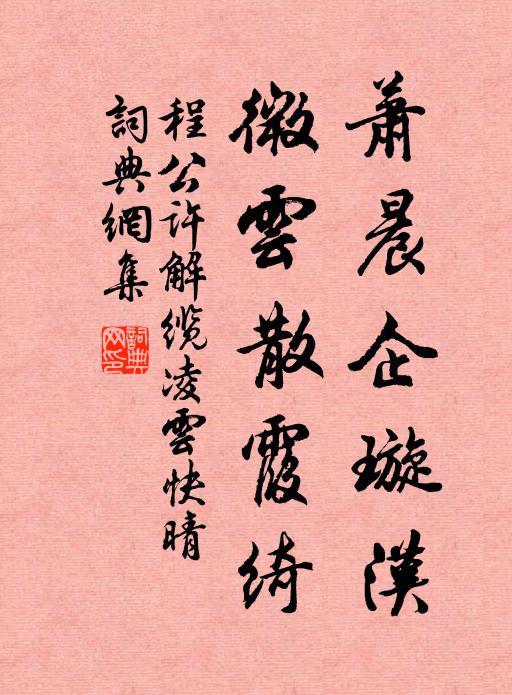 蕭晨企璇漢
微雲散霞綺
程公許解纜凌雲快晴
詞典網集
詞典網印